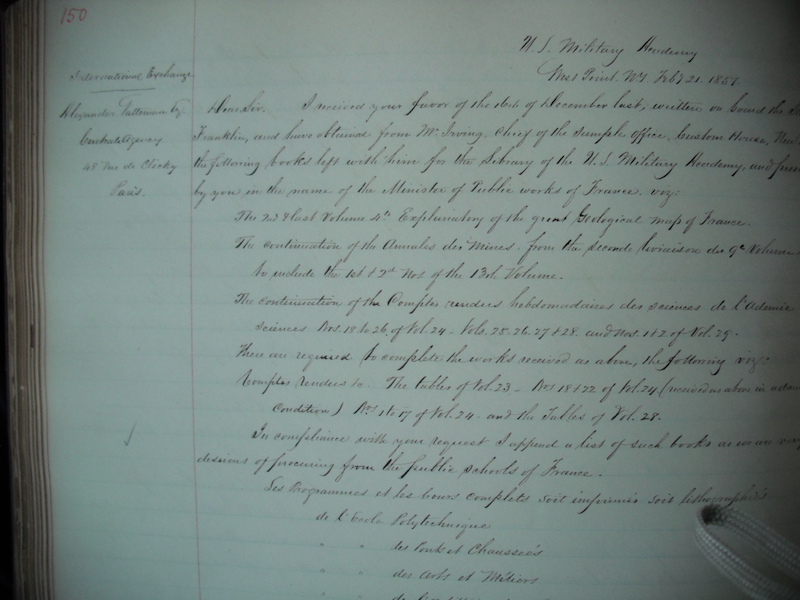 150
U. S. Military Academy
West Point. NY. Feby 21. 1851.
International Exchange
Alexander Vattemare Esq
Central Agency
48 Rue de Clichy
Paris.
Dear Sir. I received your favor of the 4th of December last, written on board the
Franklin, and have obtained from Mr Irving, Chief of the Sample office, Custom House, New
the following books left with him for the Library of the U. S. Military Academy, and
by you in the name of the Minister of Public works of France. viz:
The 2nd & last Volume 4to Explanatory of the great Geological map of France.
The continuation of the Annales des Mines. from the seconde livraison du 9e Volume
to include the 1st & 2d Nos. of the 13th Volume.
The continuation of the Comptes rendus hebdomadaires des sciences de l'Academie
sciences Nos. 18 to 26. of Vol. 24 - Vols. 25. 26. 27 & 28. and Nos. 1 & 2 of Vol. 29.
There are required to complete the works received as above, the following viz:
Comptes rendus &c. The tables of Vol. 23 - Nos 18 & 22 of Vol. 24 (received as above in a
condition) Nos 1 to 17 of Vol. 24 - and the Tables of Vol. 28.
In compliance with your request I append a list of such books as we are very
desirous of procuring from the public schools of France.
Les Programmes et les Cours complets soit imprimés soit lithographiés
de l'Ecole Polytechnique
" " des Ponts et Chausseés
" " des Arts et Métiers